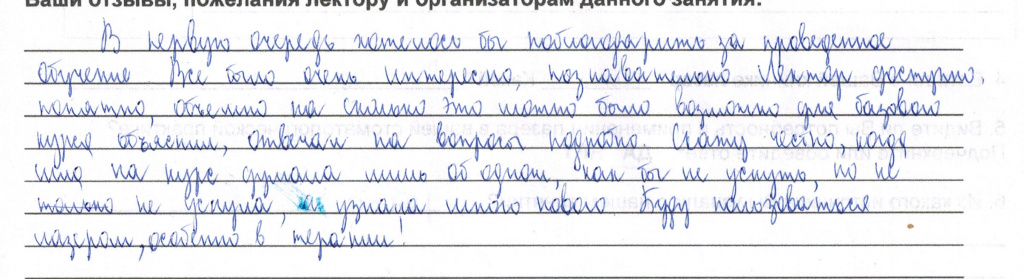 Ваши отзывы, пожелания лектору и организаторам данного занятия:
В первую очередь хотелось бы поблагодарить за проведенное
обучение Все было очень интересно, познавательно Лектор доступно,
понятно, объемно на сколько это можно было возможно для базового
курса объяснил, отвечал на вопросы подробно Скажу честно, когда
шла на курс думала лишь об одном, как бы не уснуть, но не
только не уснула, узнала много нового Буду пользоваться
лазером, особенно в терапии!